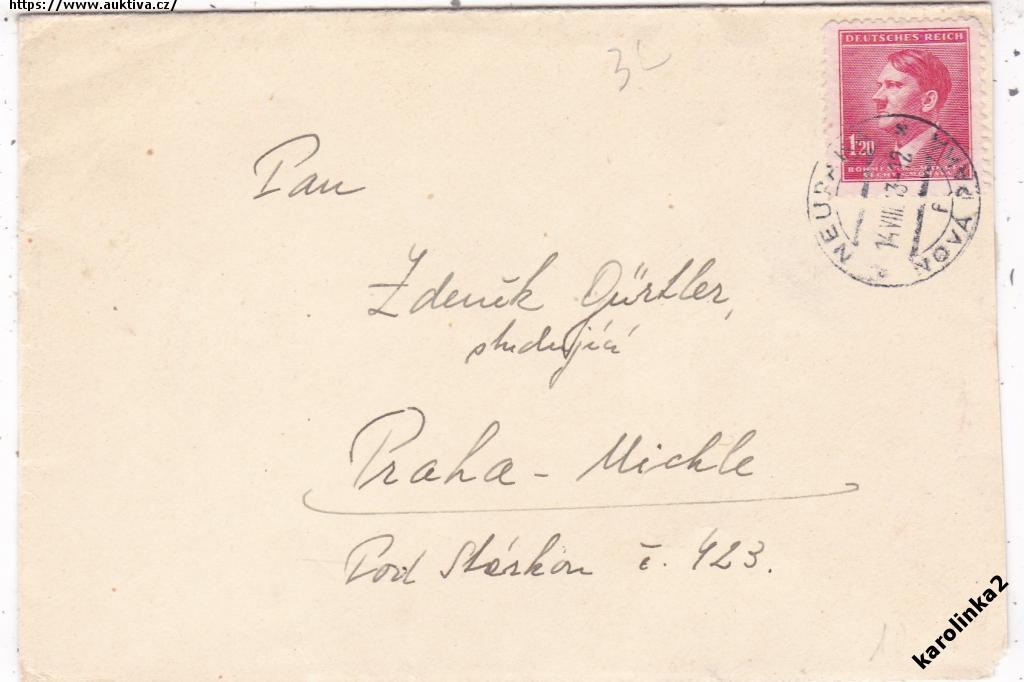 https://www.auktiva.cz/
3
DEUTSCHES REICH
1.20
BÖHMEN
MÄHREN
ČECHY MORAVA
NEUPAKA * NOVÁ PAKA
14 VIII 43-12
Pan
Zdeněk Gürtler,
studující
Praha - Michle
Pod Stárkou č. 423.
karolinka2